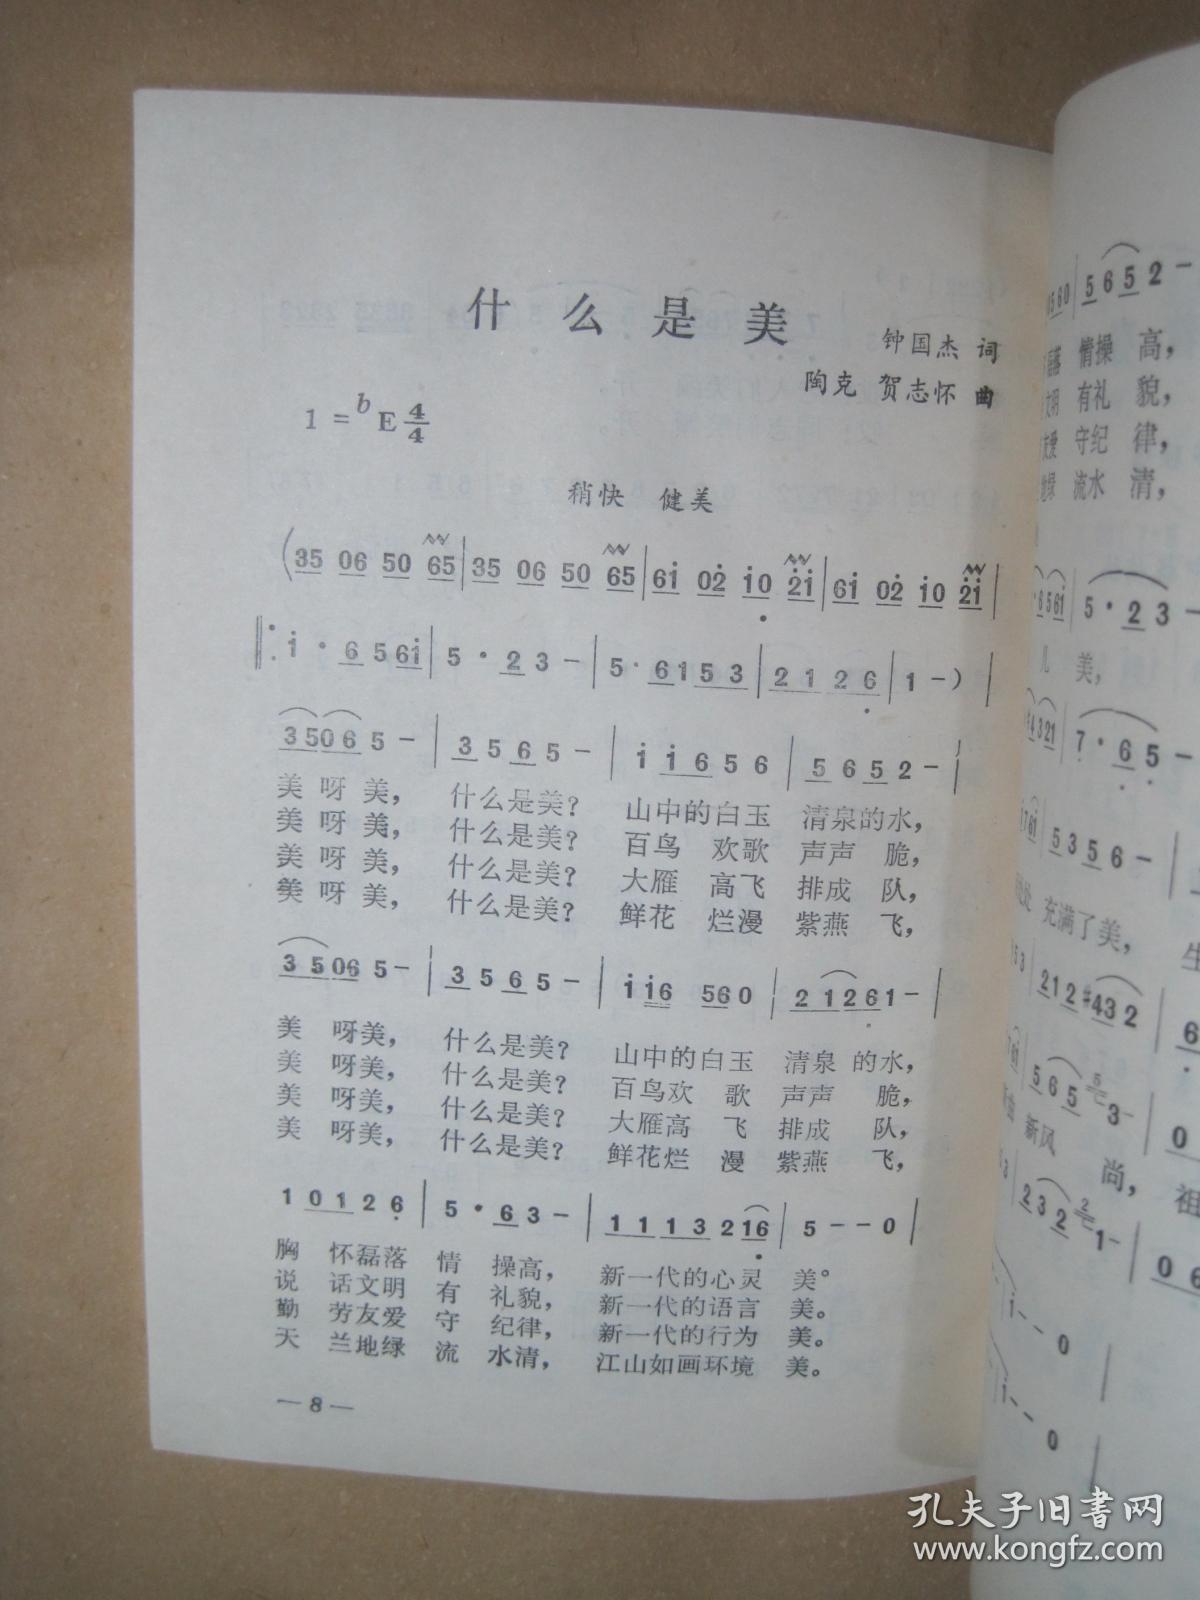 什么是美
钟国杰 词
陶克 贺志怀 曲
1=♭E 4/4
稍快 健美
(35 06 50 65|35 06 50 65|61 02 10 21|61 02 10 21|
1·6561|5·23-|5·6153|2126|1-)|
35065-|3565-|i i656|56 52-|
美呀美，什么是美？山中的白玉 清泉的水，
美呀美，什么是美？百鸟 欢歌 声声 脆，
美呀美，什么是美？大雁 高飞 排成 队，
美呀美，什么是美？鲜花 烂漫 紫燕 飞，
35065-|3565-|i i6 560|21261-|
美 呀美，什么是美？山中的白玉 清泉 的水，
美 呀美，什么是美？百鸟欢 歌 声声 脆，
美 呀美，什么是美？大雁高 飞 排成 队，
美 呀美，什么是美？鲜花烂 漫 紫燕 飞，
10126|5·63-|1113216|5--0|
胸 怀磊落 情 操高，新一代的心灵 美。
说 话文明 有 礼貌，新一代的语言 美。
勤 劳友爱 守 纪律，新一代的行为 美。
天 兰地绿 流 水清，江山如画环境 美。
—8—
5652-
情操 高，
有礼 貌，
守纪 律，
流水 清，
5·23-
儿 美，
7·65-
5356-
充满了美，
212#432
新风 尚，
孔夫子旧书网
www.kongfz.com